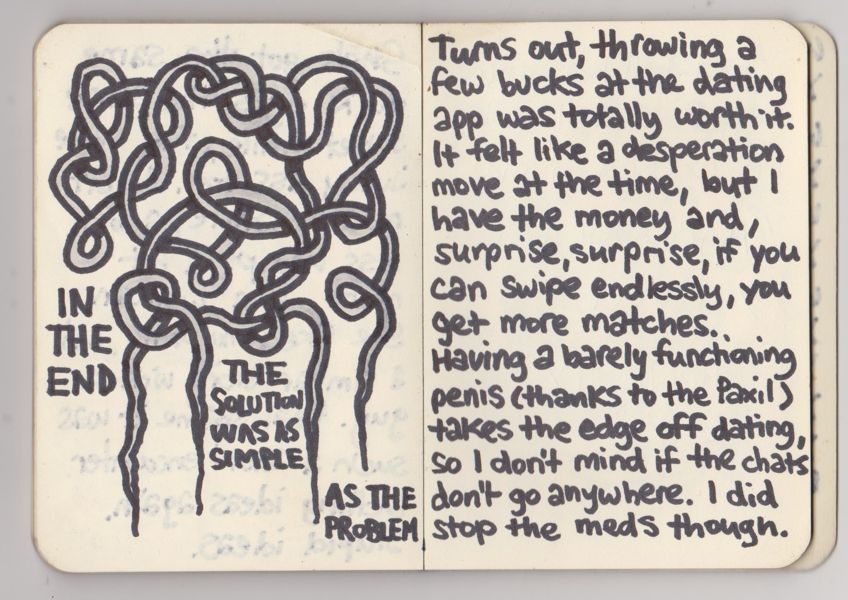 IN
THE
END
THE
SOLUTION
WAS AS
SIMPLE
AS THE
PROBLEM
Turns out, throwing a
few bucks at the dating
app was totally worth it.
It felt like a desperation
move at the time, but I
have the money and,
surprise, surprise, if you
can swipe endlessly, you
get more matches.
Having a barely functioning
penis (thanks to the Paxil)
takes the edge off dating,
so I don't mind if the chats
don't go anywhere. I did
stop the meds though.